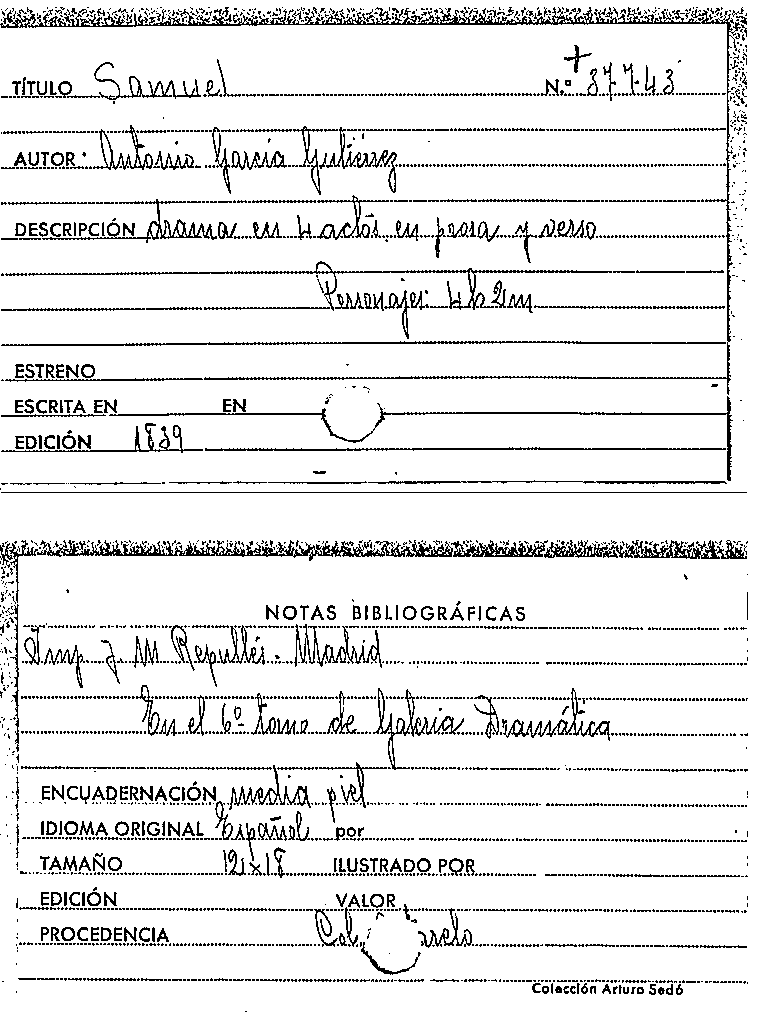 TÍTULO Samuel N.º 37743
AUTOR Antonio García Gutiérrez
DESCRIPCIÓN drama en 4 actos, en prosa y verso
Personajes: 4h 2m
ESTRENO
ESCRITA EN EN
EDICIÓN 1839
NOTAS BIBLIOGRÁFICAS
Imp J. M Repullés. Madrid
En el 6º tomo de Galeria Dramática
ENCUADERNACIÓN media piel
IDIOMA ORIGINAL Español por
TAMAÑO 12x18 ILUSTRADO POR
EDICIÓN VALOR
PROCEDENCIA Col.
Colección Arturo Sedó